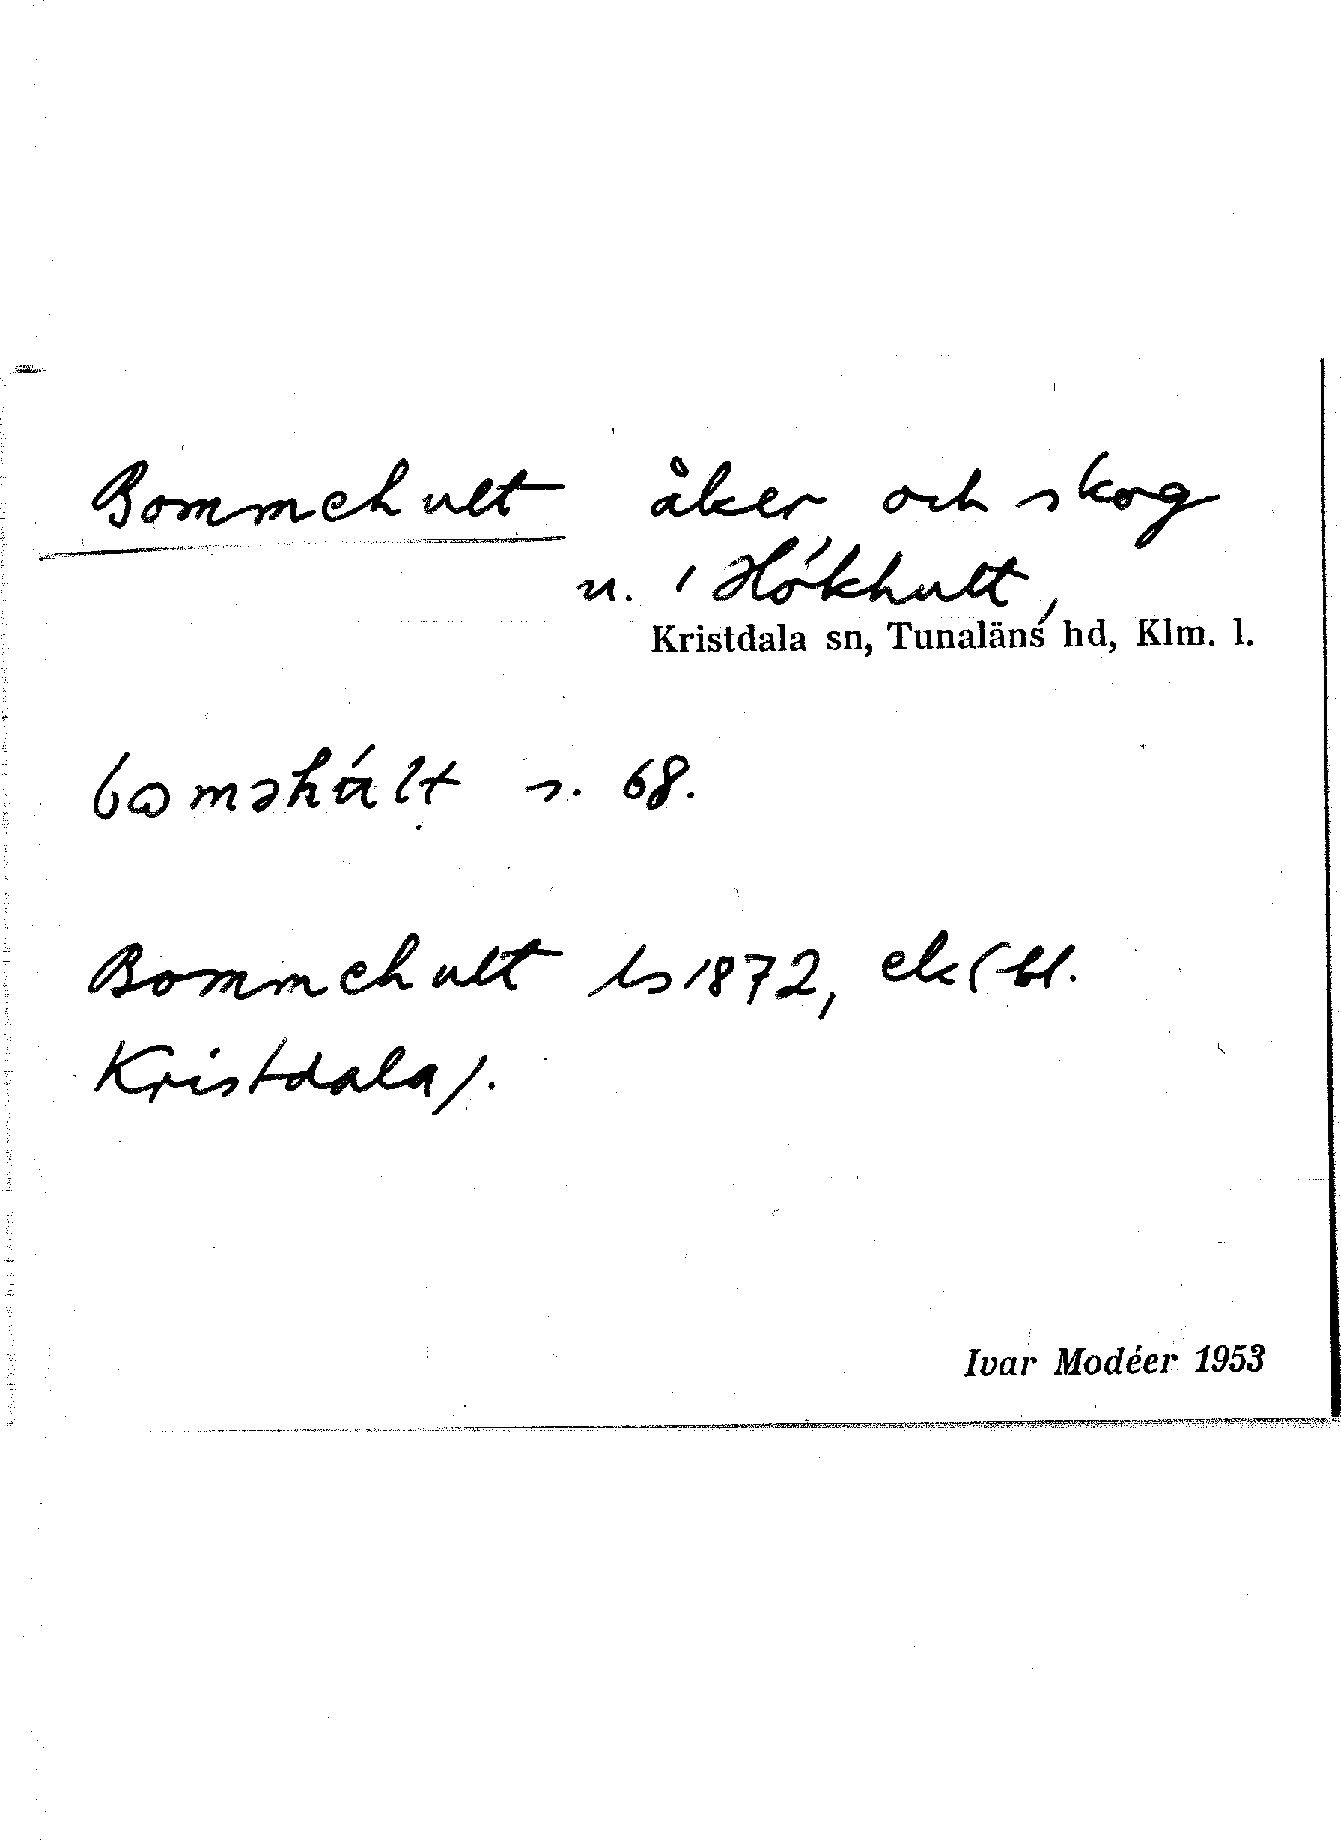 Bommehult åker och skog
u. Hökhult,
Kristdala sn, Tunaläns hd, Klm. l.
s. 68.
Bommehult ls 1872, ek (bl.
Kristdala).
Ivar Modéer 1953